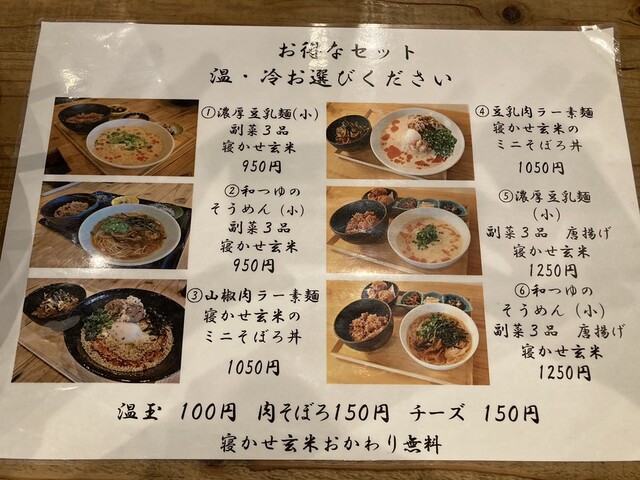 お得なセット
温・冷お選びください
①濃厚豆乳麺(小)
副菜3品
寝かせ玄米
950円
②和つゆの
そうめん(小)
副菜3品
寝かせ玄米
950円
③山椒肉ラー素麺
寝かせ玄米の
ミニそぼろ丼
1050円
④豆乳肉ラー素麺
寝かせ玄米の
ミニそぼろ丼
1050円
⑤濃厚豆乳麺
(小)
副菜3品 唐揚げ
寝かせ玄米
1250円
⑥和つゆの
そうめん(小)
副菜3品 唐揚げ
寝かせ玄米
1250円
温玉 100円 肉そぼろ150円 チーズ 150円
寝かせ玄米おかわり無料